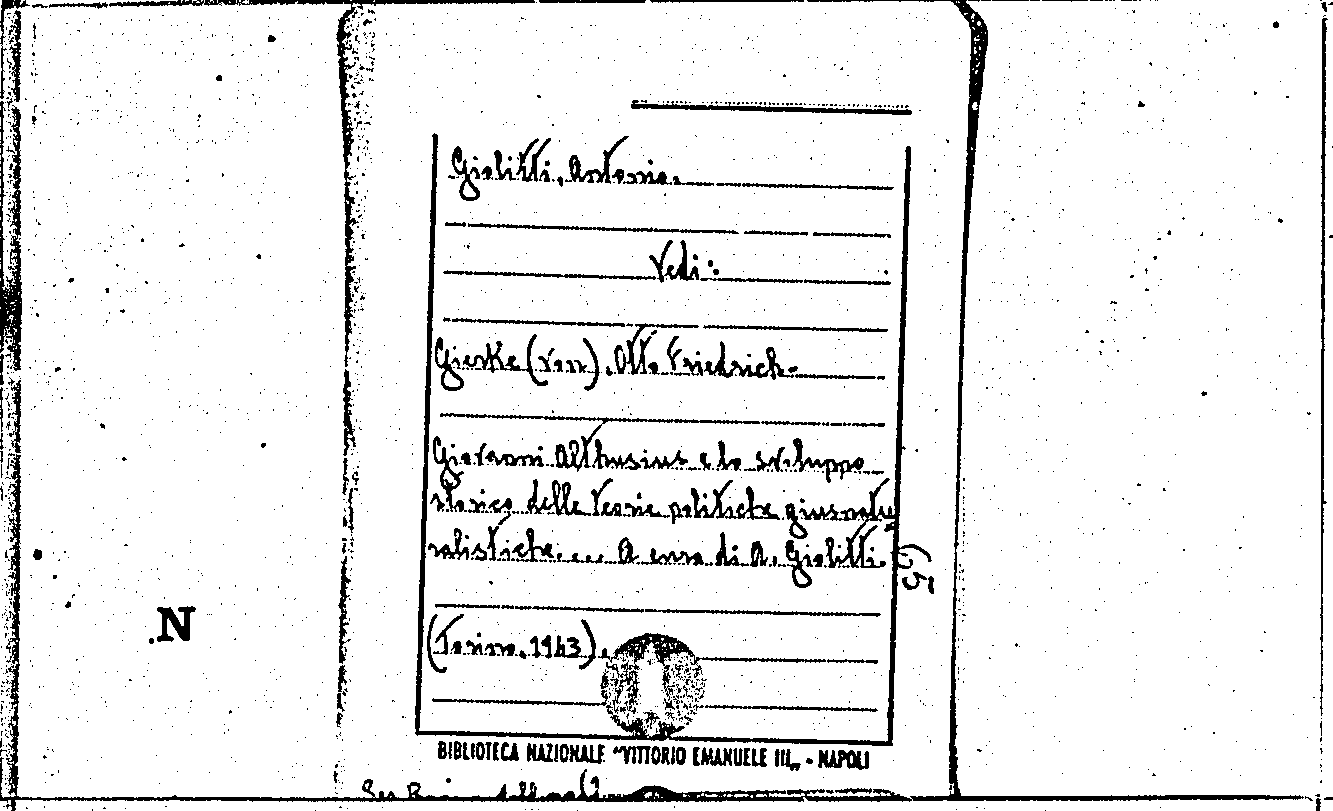 Giolitti, Antonio.
Vedi:
Gierke (von), Otto Friedrich.
Giovanni Althusius e lo sviluppo
storico delle teorie politiche giusnatu
ralistiche.... A cura di A. Giolitti.
65
N
(Torino, 1943).
BIBLIOTECA NAZIONALE "VITTORIO EMANUELE III„ - NAPOLI